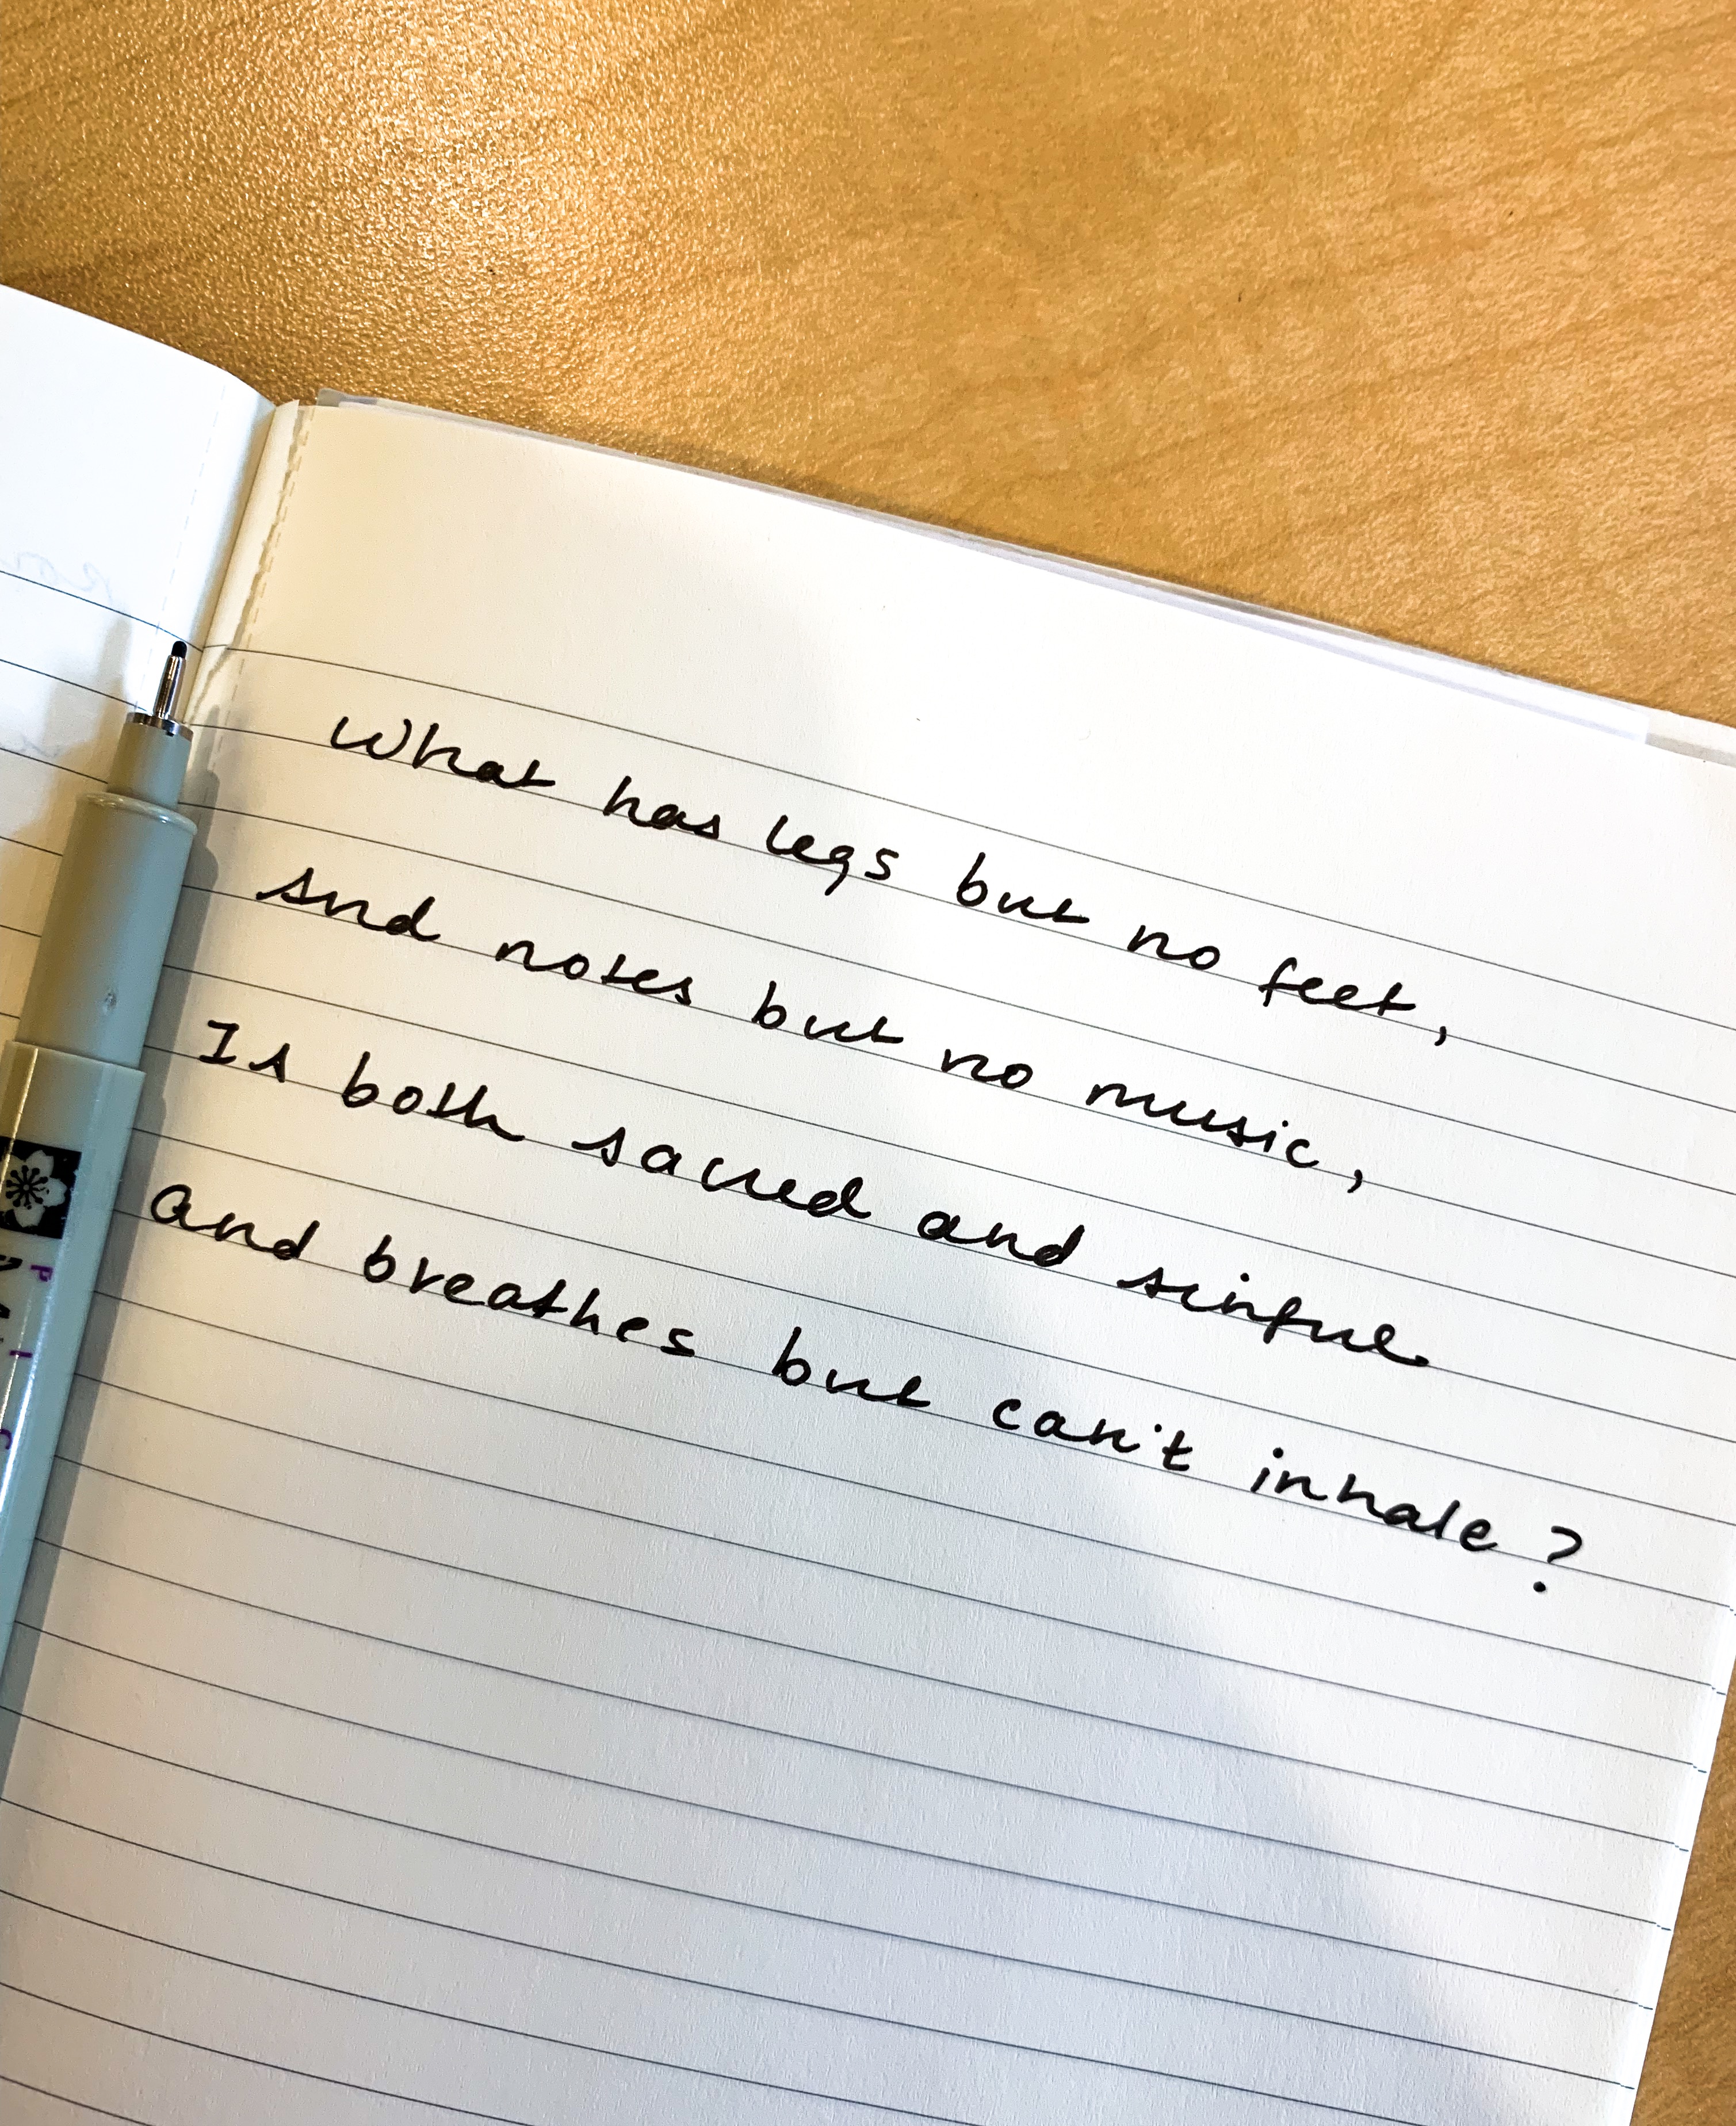 What has legs but no feet,
And notes but no music,
Is both sacred and sinful
And breathes but can't inhale?